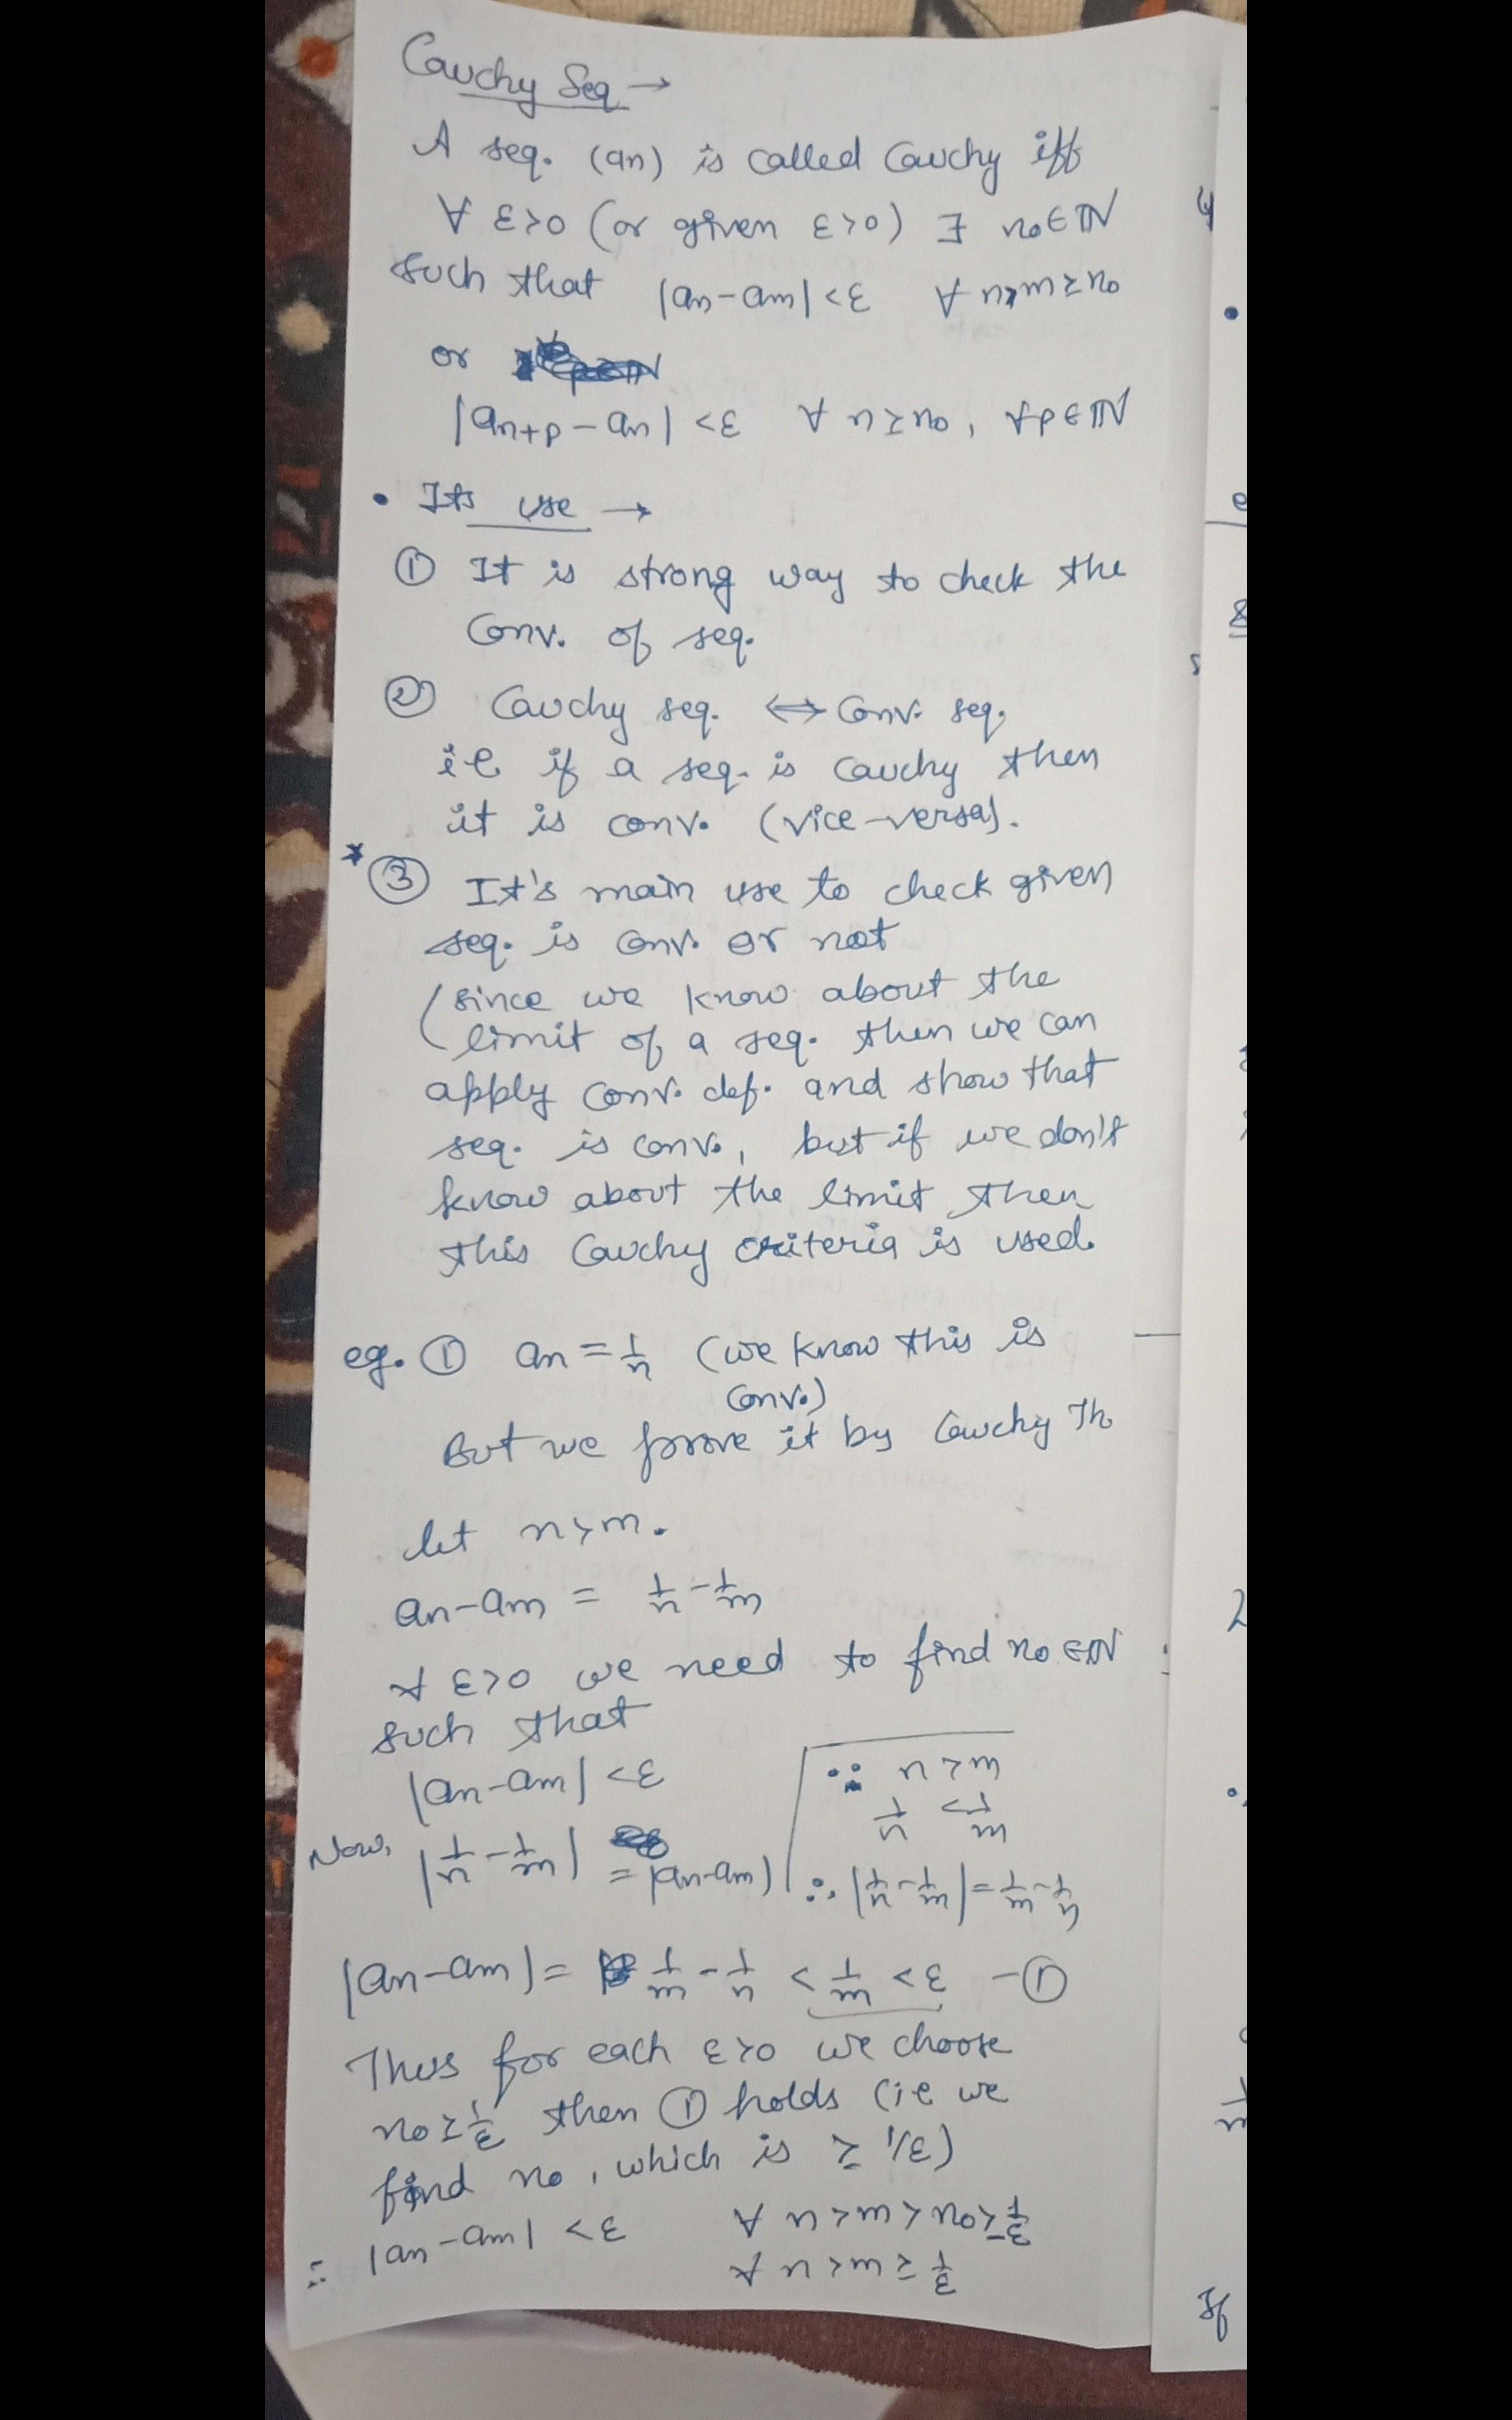 Cauchy Seq →
A seq. (an) is called Cauchy iff
∀ ε>0 (or given ε>0) ∃ n₀∈ℕ
such that |an-am|<ε ∀ n>m≥n₀
or
|an+p - an| <ε ∀ n≥n₀, ∀p∈ℕ
• Its use →
① It is strong way to check the
Conv. of seq.
② Cauchy seq. ⟺ Conv. seq.
ie if a seq. is Cauchy then
it is conv. (vice-versa).
* ③ It's main use to check given
seq. is conv. or not
(since we know about the
limit of a seq. then we can
apply conv. def. and show that
seq. is conv., but if we don't
know about the limit then
this Cauchy criteria is used.
eg. ① an = 1/n (we know this is
Conv.)
But we prove it by Cauchy Th
let n>m.
an-am = 1/n - 1/m
∀ ε>0 we need to find n₀ ∈ℕ
such that
|an-am| <ε
∵ n>m
1/n < 1/m
Now, |1/n - 1/m| = |an-am|
∴ |1/n - 1/m| = 1/m - 1/n
|an-am| = 1/m - 1/n < 1/m < ε -①
Thus for each ε>0 we choose
n₀≥1/ε then ① holds (ie we
find n₀, which is ≥ 1/ε)
∴ |an-am| <ε ∀ n>m>n₀≥1/ε
∀ n>m≥1/ε
2
If